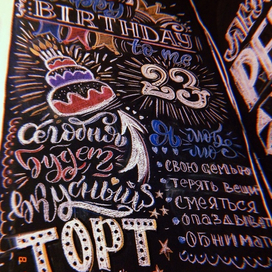 HAPPY
BIRTHDAY
to me
23
сегодня
будет
вкусный
ТОРТ
Я люблю
• свою семью
• терять вещи
• смеяться
• опаздыват
• обнимат